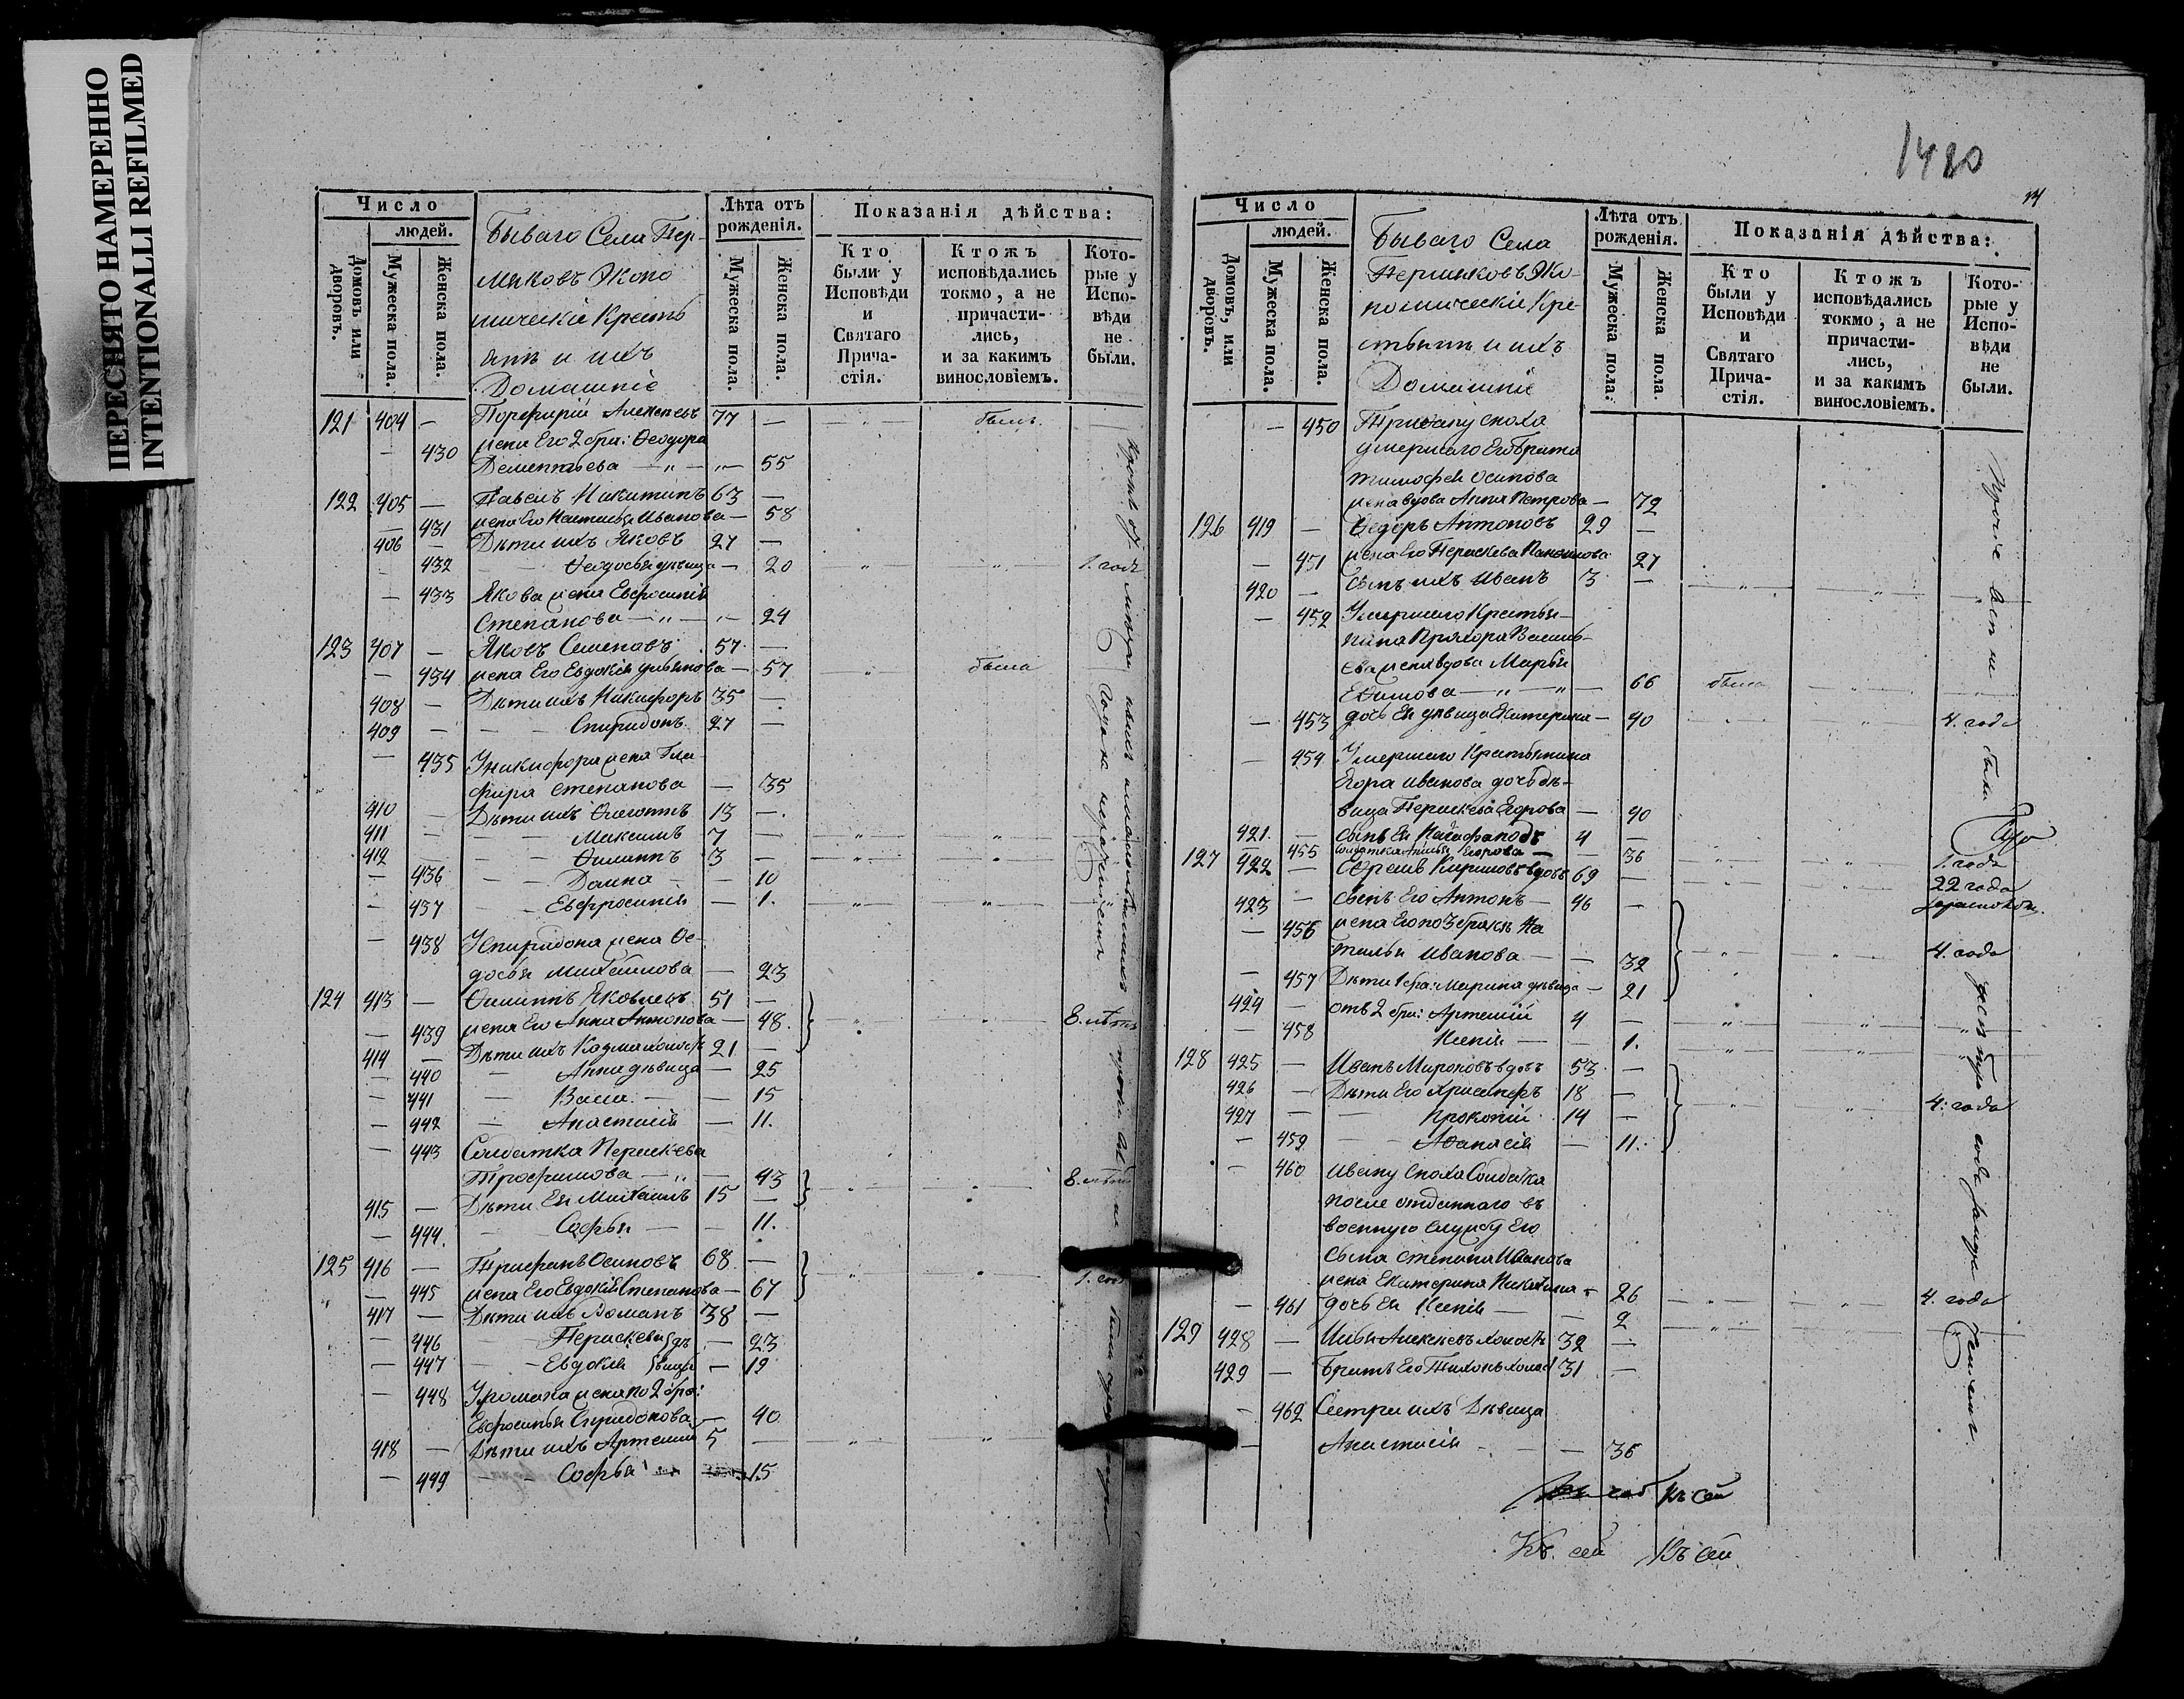 ПЕРЕСНЯТО НАМЕРЕННО
INTENTIONALLI REFILMED
Число
людей.
Домовъ или дворовъ.
Мужеска пола.
Женска пола.
Бываго Села Пер-
мяковъ Эконо
мическіе Кресть
яне и ихъ
Домашніе
Лѣта отъ рожденія.
Мужеска пола.
Женска пола.
Показанія дѣйства:
Кто были у Исповѣди и Святаго Причастія.
Ктожъ исповѣдались токмо, а не причастились, и за какимъ винословіемъ.
Которые у Исповѣди не были.
121 404 — Порфирій Алексѣевъ 77 —
— 430 жена Его 2 бра: Ѳеодора
Дементьева — 55
122 405 — Павелъ Никитинъ 63 —
— 431 жена Его Наталья Иванова — 58
406 — Дѣти ихъ Яковъ 27 —
— 432 Ѳеодосья дѣвица — 20 1. годъ
— 433 Якова жена Евфросинія
Степанова — 24
123 407 — Яковъ Семеновъ 57 —
— 434 жена Его Евдокія Ульянова — 57 была
408 — Дѣти ихъ Никифоръ 35 —
409 — Спиридонъ 27 —
— 435 У Никифора жена Гла
фира Степанова — 35
410 — Дѣти ихъ 13 —
411 — Максимъ 7 —
412 — Филиппъ 3 —
— 436 Домна — 10
— 437 Евфросинія — 1.
— 438 У Спиридона жена Ѳе-
досья Михайлова — 23
124 413 — Филиппъ Яковлевъ 51 —
— 439 жена Его Анна Антонова — 48. 8. лѣтъ
414 — Дѣти ихъ Козма холостъ 21 —
— 440 Анна дѣвица — 25
— 441 Васса — 15
— 442 Анастасія — 11.
— 443 Солдатка Параскева
Трофимова — 43 8. лѣтъ
415 — Дѣти Ея Михаилъ 15 —
— 444. Софья — 11.
125 416 — Трифанъ Осиповъ 68 —
— 445 жена Его Евдокія Степанова — 67 1. годъ
417 — Дѣти ихъ Романъ 38 —
— 446 Параскева дѣ — 23
— 447 Евдокія вицы — 19
— 448 У Романа жена по 2 бра:
Евфросинья Спиридонова — 40
418 — Дѣти ихъ Артемій 5 —
— 449 Софья — 15
1480
Число
людей.
Домовъ, или дворовъ.
Мужеска пола.
Женска пола.
Бываго Села
Пермяковъ Эко-
номическіе Кре-
стьяне и ихъ
Домашніе
Лѣта отъ рожденія.
Мужеска пола.
Женска пола
Показанія дѣйства:
Кто были у Исповѣди и Святаго Причастія.
Ктожъ исповѣдались токмо, а не причастились, и за какимъ винословіемъ.
Которые у Исповѣди не были.
— 450 Трифану сноха
умершаго Его брата
Тимофея Осипова
жена вдова Анна Петрова — 72
126 419 — Ѳедоръ Антоновъ 29 —
— 451 жена Его Параскева — 27
420 — Сынъ ихъ Иванъ 3 —
— 452 Умершаго Кресть-
нина Прохора Василь-
ева жена вдова Марья
Ефимова — 66 была
— 453 дочь Ея дѣвица Екатерина — 40 4. года
— 454 Умершаго Крестьянина
Егора Иванова дочь дѣ-
вица Параскева Егорова — 40
421. — Сынъ Ея 4 —
455 Солдатка Егорова — 36 1. годъ
127 422 — Ефремъ Кириловъ вдовъ 69 — 22 года
423 — Сынъ Его Антонъ 46 —
— 456 жена Его по 3 бракѣ На
талья Иванова — 32 4. года
— 457 Дѣти 1 бра: Марина дѣвица — 21
424 — отъ 2 бра: Артемій 4 —
— 458 Ксенія — 1.
128 425 — Иванъ Мироновъ вдовъ 53 —
426 — Дѣти Его Христофоръ 18 —
427 — Прокопій 14 — 4. года
— 459 Аѳанасія — 11.
— 460 Ивану Сноха Солдатка
после отданнаго въ
военную службу Его
сына Степана Иванова
жена Екатерина — 26 4. года
— 461 дочь Ея Ксенія — 2
129 428 — Илья Алексѣевъ холостъ 32 —
429 — Братъ Его Тихонъ холос 31 —
— 462 Сестра ихъ Дѣвица
— Анастасія — 36